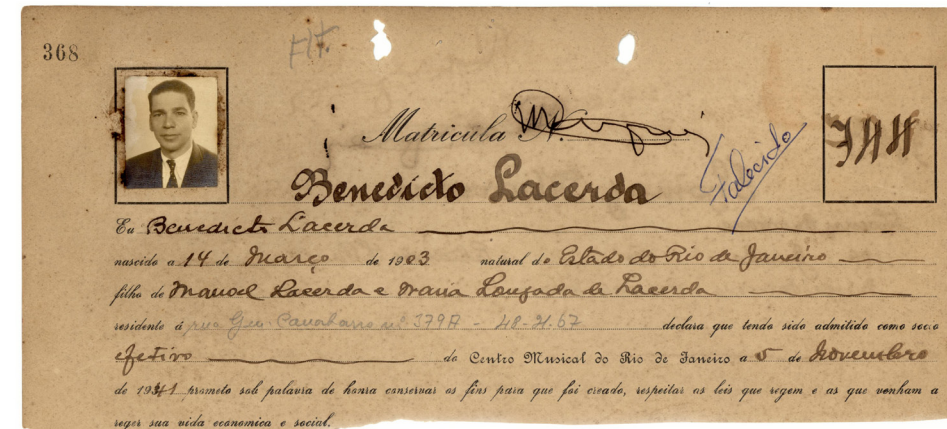 368
Matricula N.
Falecido
Benedicto Lacerda
Eu Benedicto Lacerda
nascido a 14 de Março de 1903 natural do Estado do Rio de Janeiro
filho de Manoel Lacerda e Maria Louzada de Lacerda
residente á rua Gen. Canabarro nº 379A - 48-4167 declara que tendo sido admitido como socio
efetivo do Centro Musical do Rio de Janeiro a 5 de Novembro
de 1941 prometo sob palavra de honra conservar os fins para que foi creado, respeitar as leis que regem e as que venham a
reger sua vida economica e social.